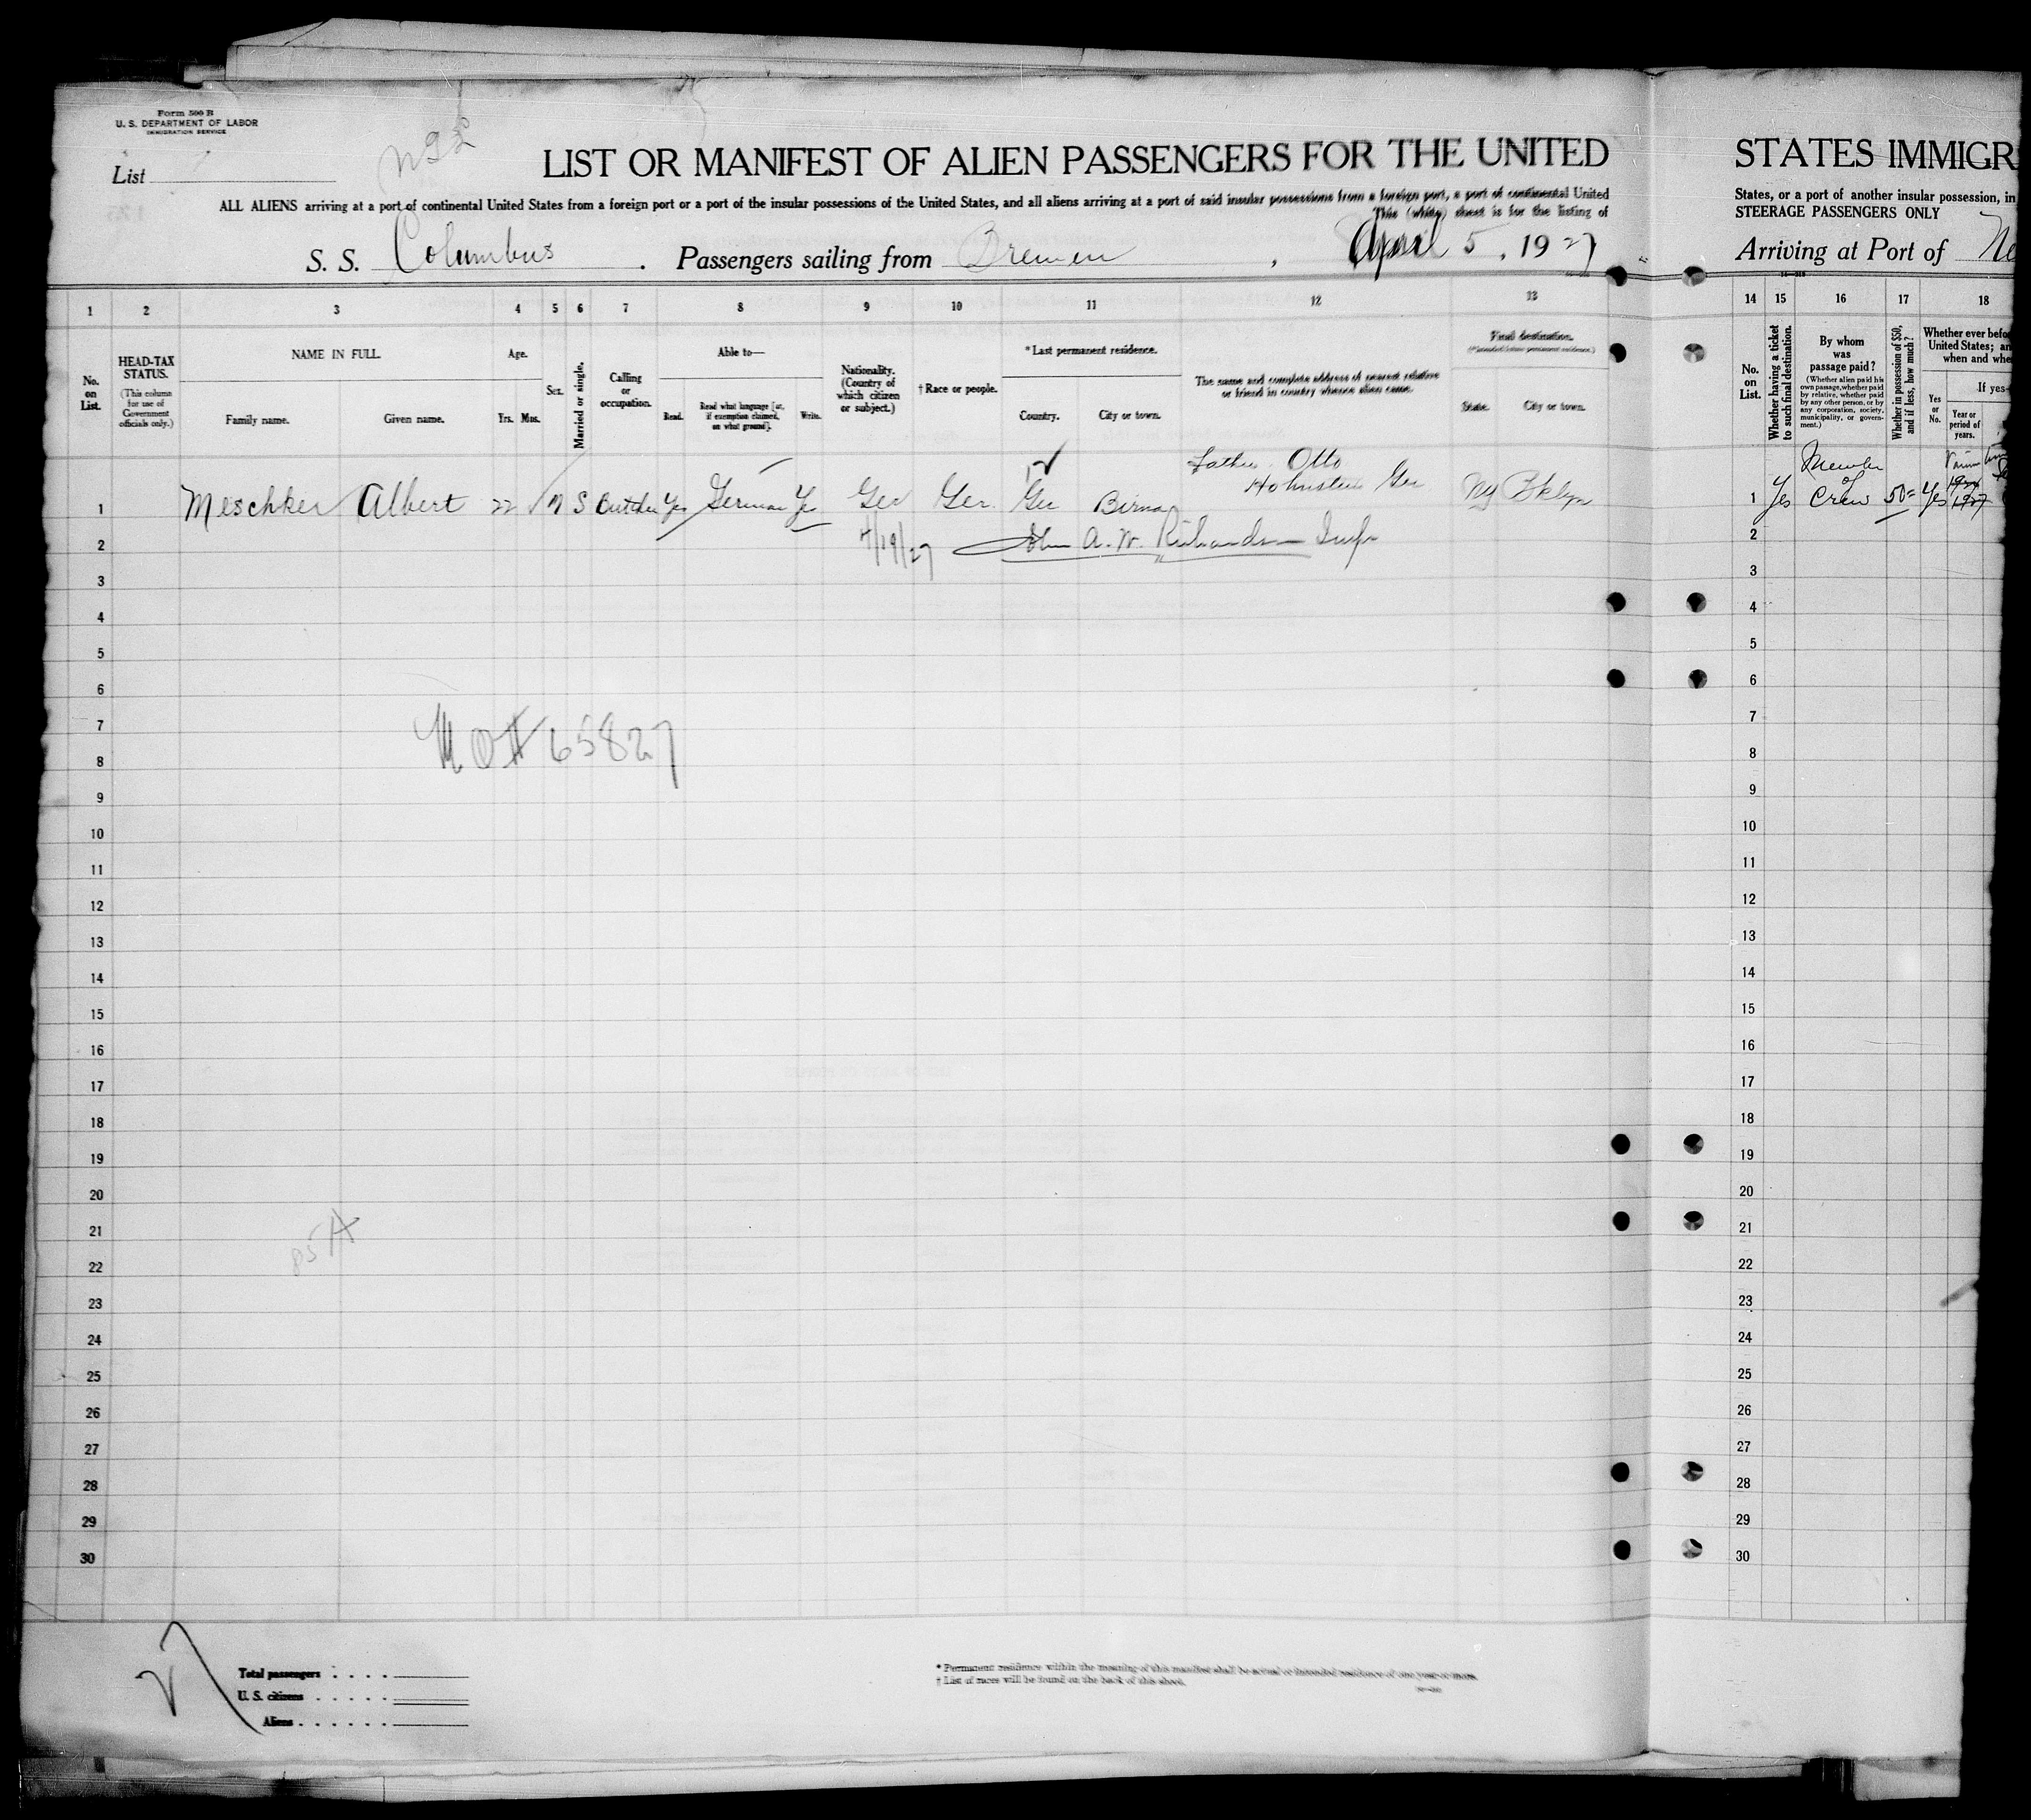 Form 500 B
U. S. DEPARTMENT OF LABOR
IMMIGRATION SERVICE
List
LIST OR MANIFEST OF ALIEN PASSENGERS FOR THE UNITED
ALL ALIENS arriving at a port of continental United States from a foreign port or a port of the insular possessions of the United States, and all aliens arriving at a port of said insular possessions from a foreign port, a port of continental United
This (white) sheet is for the listing of
S. S. Columbus . Passengers sailing from Bremen , April 5, 1927
1 2 3 4 5 6 7 8 9 10 11 12 13
No. on List.
HEAD-TAX STATUS.
(This column for use of Government officials only.)
NAME IN FULL
Family name. Given name.
Age.
Yrs. Mos.
Sex.
Married or single.
Calling or occupation.
Able to—
Read. Read what language [or, if exemption claimed, on what ground]. Write.
Nationality. (Country of which citizen or subject.)
† Race or people.
* Last permanent residence.
Country. City or town.
The name and complete address of nearest relative or friend in country whence alien came.
Final destination.
(*Intended future permanent residence.)
State. City or town.
Father Otto
1 Meschker Albert 22 M S Butcher Yes German Yes Ger Ger. Ger Birna Hohnstein Ger NY Bklyn
2 4/19/27 John A. W. Richardson Insp
3
4
5
6
7
8
MO# 65827
9
10
11
12
13
14
15
16
17
18
19
20
21
85A
22
23
24
25
26
27
28
29
30
Total passengers
U. S. citizens
Aliens
* Permanent residence within the meaning of this manifest shall be actual or intended residence of one year or more.
† List of races will be found on the back of this sheet.
STATES IMMIGR
States, or a port of another insular possession, in
STEERAGE PASSENGERS ONLY
Arriving at Port of Ne
14 15 16 17 18
No. on List.
Whether having a ticket to such final destination.
By whom was passage paid?
(Whether alien paid his own passage, whether paid by relative, whether paid by any other person, or by any corporation, society, municipality, or government.)
Whether in possession of $50, and if less, how much?
Whether ever befo
United States; an
when and whe
If yes—
Yes or No.
Year or period of years.
1 Yes Member of Crew 50= Yes 1924 1927
2
3
4
5
6
7
8
9
10
11
12
13
14
15
16
17
18
19
20
21
22
23
24
25
26
27
28
29
30